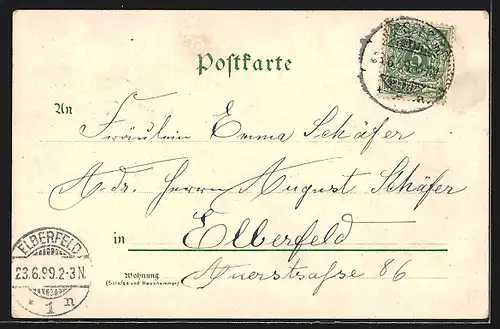 Postkarte
An
Fräulein Emma Schäfer
Adr. Herrn August Schäfer
in Elberfeld
Wohnung
(Straße und Hausnummer)
Auerstraße 86
ELBERFELD
23.6.99.2-3N.
* 1 n